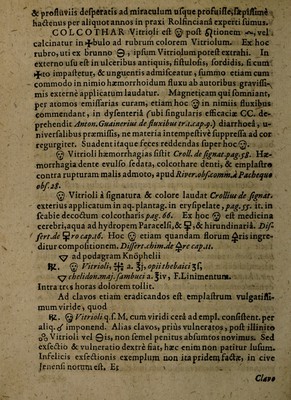 & profluviis desperatis ad miraculum usque profuisse, sæpissime
hactenus per aliquot annos in praxi Rolfinciana experti sumus.
COLCOTHAR Vitrioli est post tionem vel
calcinatur in bulo ad rubrum colorem Vitriolum. Ex hoc
rubro, uti ex brunno ⊖, ipsum Vitriolum potest extrahi. In
externo usu est in ulceribus antiquis, fistulosis, sordidis, si cum
to impastetur, & unguentis admisceatur, summo etiam cum
commodo in nimio hæmorrhoidum fluxu ab autoribus gravissi-
mis externe applicatum laudatur. Magneticam qui somniant,
per atomos emissarias curam, etiam hoc in nimiis fluxibus
commendant, in dysenteria (ubi singularis efficaciæ CC. de-
prehendit Anton. Guainerius de fluxibus tr.1.c.9.p.) diarrhoea, u-
niversalibus præmissis, ne materia intempestive suppressa ad cor
regurgiter. Suadent itaque feces reddendas super hoc
Vitrioli hæmorrhagias sistit Croll. de signat. pag. 58. Hæ-
morrhagia dente evulso sedata, colcothare denti, & emplastro
contra rupturam malis admoto, apud River. obs. comm. à Pacheque
obs. 28.
Vitrioli à signatura & colore laudat Crollius de signat.
exterius applicatum in aq. plantag. in erysipelate, pag. 55. it. in
scabie decoctum colcotharis pag. 66. Ex hoc est medicina
cerebri, aqua ad hydropem Paracelsi, & ♀, & hirundinaria. Dis-
sert. de ♀ re cap. 16. Hoc etiam quandam florum ♀ris ingre-
ditur compositionem. Dissert. chim. de ♀re cap. 11.
ad podagram Knöphelii
℞. Vitrioli, a. ʒj, opii thebaici ʒʃ,
chelidon. maj. sambuci a. ʒiv, F. Linimentum.
Intra tres horas dolorem tollit.
Ad clavos etiam eradicandos est emplastrum vulgatissi-
mum viride, quod
℞. Vitrioli q. s. M. cum viridi cera ad empl. consistent. per
aliq. imponend. Alias clavos, prius vulneratos, post illinito
Vitrioli vel ⊖is, non semel penitus absumtos novimus. Sed
exsectio & vulneratio dextre fiat, hæc enim non patitur lusum.
Infelicis exsectionis exemplum non ita pridem factæ, in cive
Jenensi norunt est. Et
Clavo